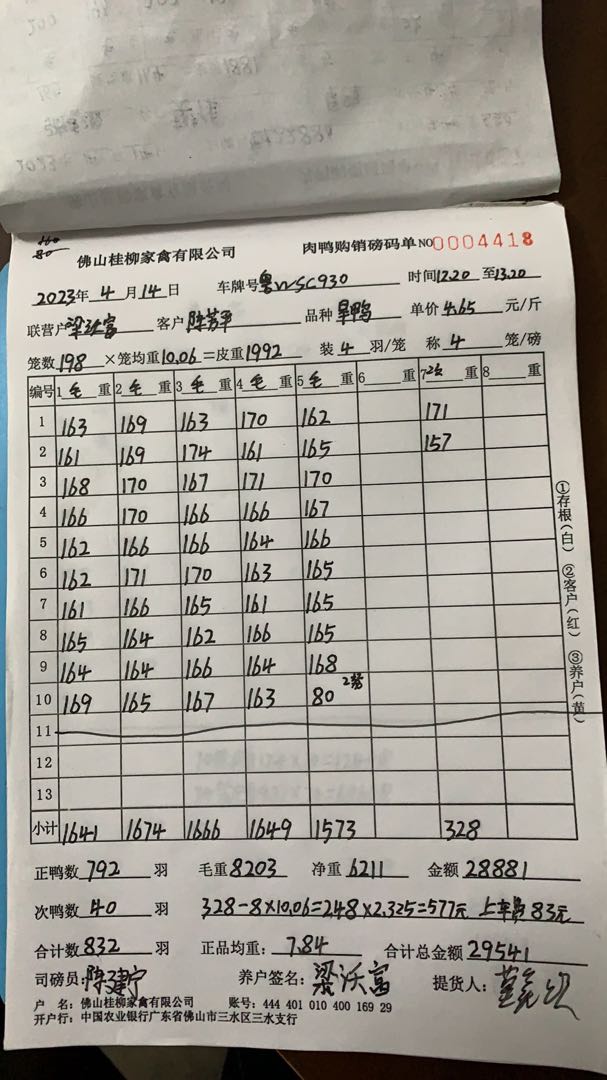 160
80
佛山桂柳家禽有限公司 肉鸭购销磅码单 NO 0004418
2023年 4 月 14 日 车牌号 时间 12.20 至 13.20
联营户 客户 陈芳平 品种 旱鸭 单价 4.65 元/斤
笼数 198 ×笼均重 10.06 =皮重 1992 装 4 羽/笼 称 4 笼/磅
编号 1 毛 重 2 毛 重 3 毛 重 4 毛 重 5 毛 重 6 重 7 次 重 8 重
1 163 169 163 170 162 171
2 161 169 174 161 165 157
3 168 170 167 171 170
4 166 170 166 166 167
5 162 166 166 164 166
6 162 171 170 163 165
7 161 166 165 161 165
8 165 164 162 166 165
9 164 164 166 164 168
10 169 165 167 163 80 2笼
11
12
13
小计 1641 1674 1666 1649 1573 328
①存根(白) ②客户(红) ③养户(黄)
正鸭数 792 羽 毛重 8203 净重 6211 金额 28881
次鸭数 40 羽 328-8×10.06=248×2.325=577元 上车费 83元
合计数 832 羽 正品均重: 7.84 合计总金额 29541
司磅员: 陈建宁 养户签名: 梁沃富 提货人:
户 名: 佛山桂柳家禽有限公司 账号: 444 401 010 400 169 29
开户行: 中国农业银行广东省佛山市三水区三水支行